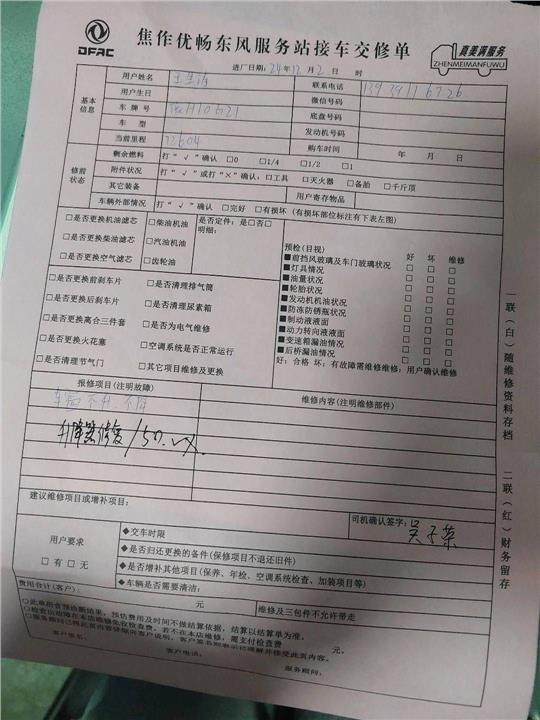 DFAC
焦作优畅东风服务站接车交修单
真美满服务
ZHENMEIMANFUWU
进厂日期：24年12月2日 时
基本信息
用户姓名
联系电话 13939116726
用户生日
微信号码
车牌号
底盘号码
车型
发动机号码
当前里程 72604
购车时间 年 月 日
修前状态
剩余燃料 打“√”确认 □0 □1/4 □1/2 □1
附件状况 打“√”或打“×”确认：□工具 □灭火器 □备胎 □千斤顶
其它装备
用户寄存物品
车辆外部情况 打“√”确认 □完好 □有损坏（有损坏部位标注有下表左图）
□是否更换机油滤芯
□是否更换柴油滤芯
□是否更换空气滤芯
□柴油机油
□汽油机油
□齿轮油
是否定件：是□否□
明细：
□是否更换前刹车片
□是否更换后刹车片
□是否更换离合三件套
□是否更换火花塞
□是否清理节气门
□是否清理排气筒
□是否清理尿素箱
□是否为电气维修
□空调系统是否正常运行
□其它项目维修及更换
预检（目视） 好 坏 维修
■前挡风玻璃及车门玻璃状况 □ □ □
■灯具情况 □ □ □
■油量状况 □ □ □
■轮胎状况 □ □ □
■发动机机油状况 □ □ □
■防冻防锈瓶状况 □ □ □
■制动液液面 □ □ □
■动力转向液液面 □ □ □
■变速箱漏油情况 □ □ □
■后桥漏油情况 □ □ □
好：合格 坏：有故障需维修维修：用户确认维修
报修项目（注明故障）
维修内容（注明维修部件）
车窗不升不降
升降器修复 150.
建议维修项目或增补项目：
司机确认签字：
用户要求
□有 □无
◆交车时限
◆是否归还更换的备件（保修项目不退还旧件）
◆是否增补其他项目（保养、年检、空调系统检查、加装项目等）
◆车辆是否需要清洁：
费用合计（客户）： 元
维修及三包件不允许带走
○此单据含预诊断结果，预估费用及时间不做结算依据，结算以结算单为准。
○检查出故障在本店维修免收检查费，若不在本店维修，需支付检查费 元。
○服务顾问已将此页内容详细向客户说明，客户签名则表示已理解并接受此页内容。
客户签名：
客户电话：
服务顾问：
一联（白）随维修资料存档
二联（红）财务留存